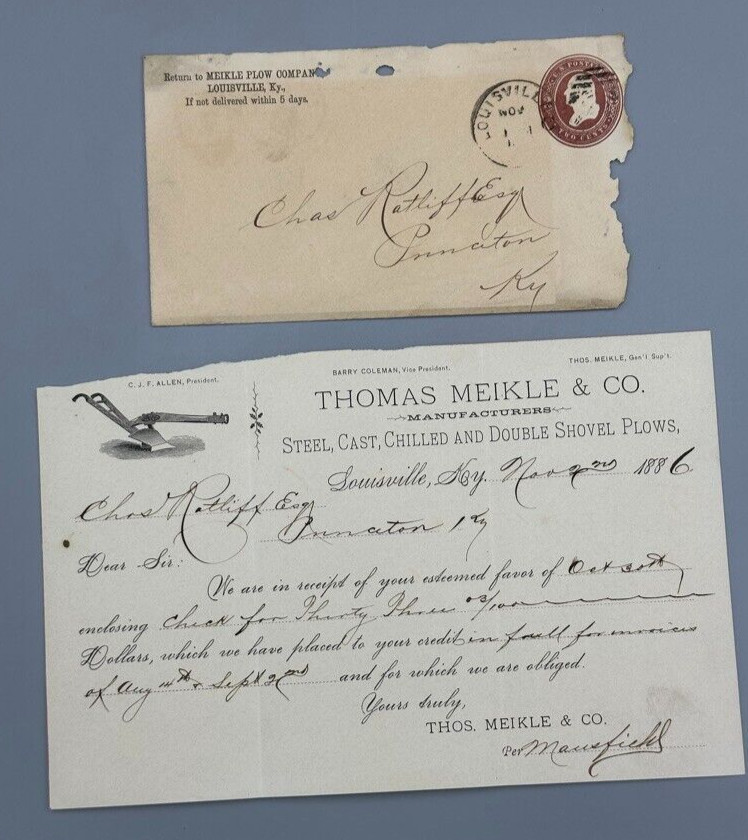 Return to MEIKLE PLOW COMPAN
LOUISVILLE, Ky.,
If not delivered within 5 days.
LOUISVILL
NOV
1
U.S. POSTAGE
TWO CENTS
Chas Ratliff Esq
Princeton
Ky
C. J. F. ALLEN, President.
BARRY COLEMAN, Vice President.
THOS. MEIKLE, Gen'l Sup't.
THOMAS MEIKLE & CO.
MANUFACTURERS
STEEL, CAST, CHILLED AND DOUBLE SHOVEL PLOWS,
Louisville, Ky. Nov 2nd 1886
Chas Ratliff Esq
Princeton, Ky
Dear Sir:
We are in receipt of your esteemed favor of Oct 30th
enclosing Check for Thirty Three 03/100
Dollars, which we have placed to your credit in full for invoices
of Aug 14th & Sept 22nd and for which we are obliged.
Yours truly,
THOS. MEIKLE & CO.
Per Mansfield